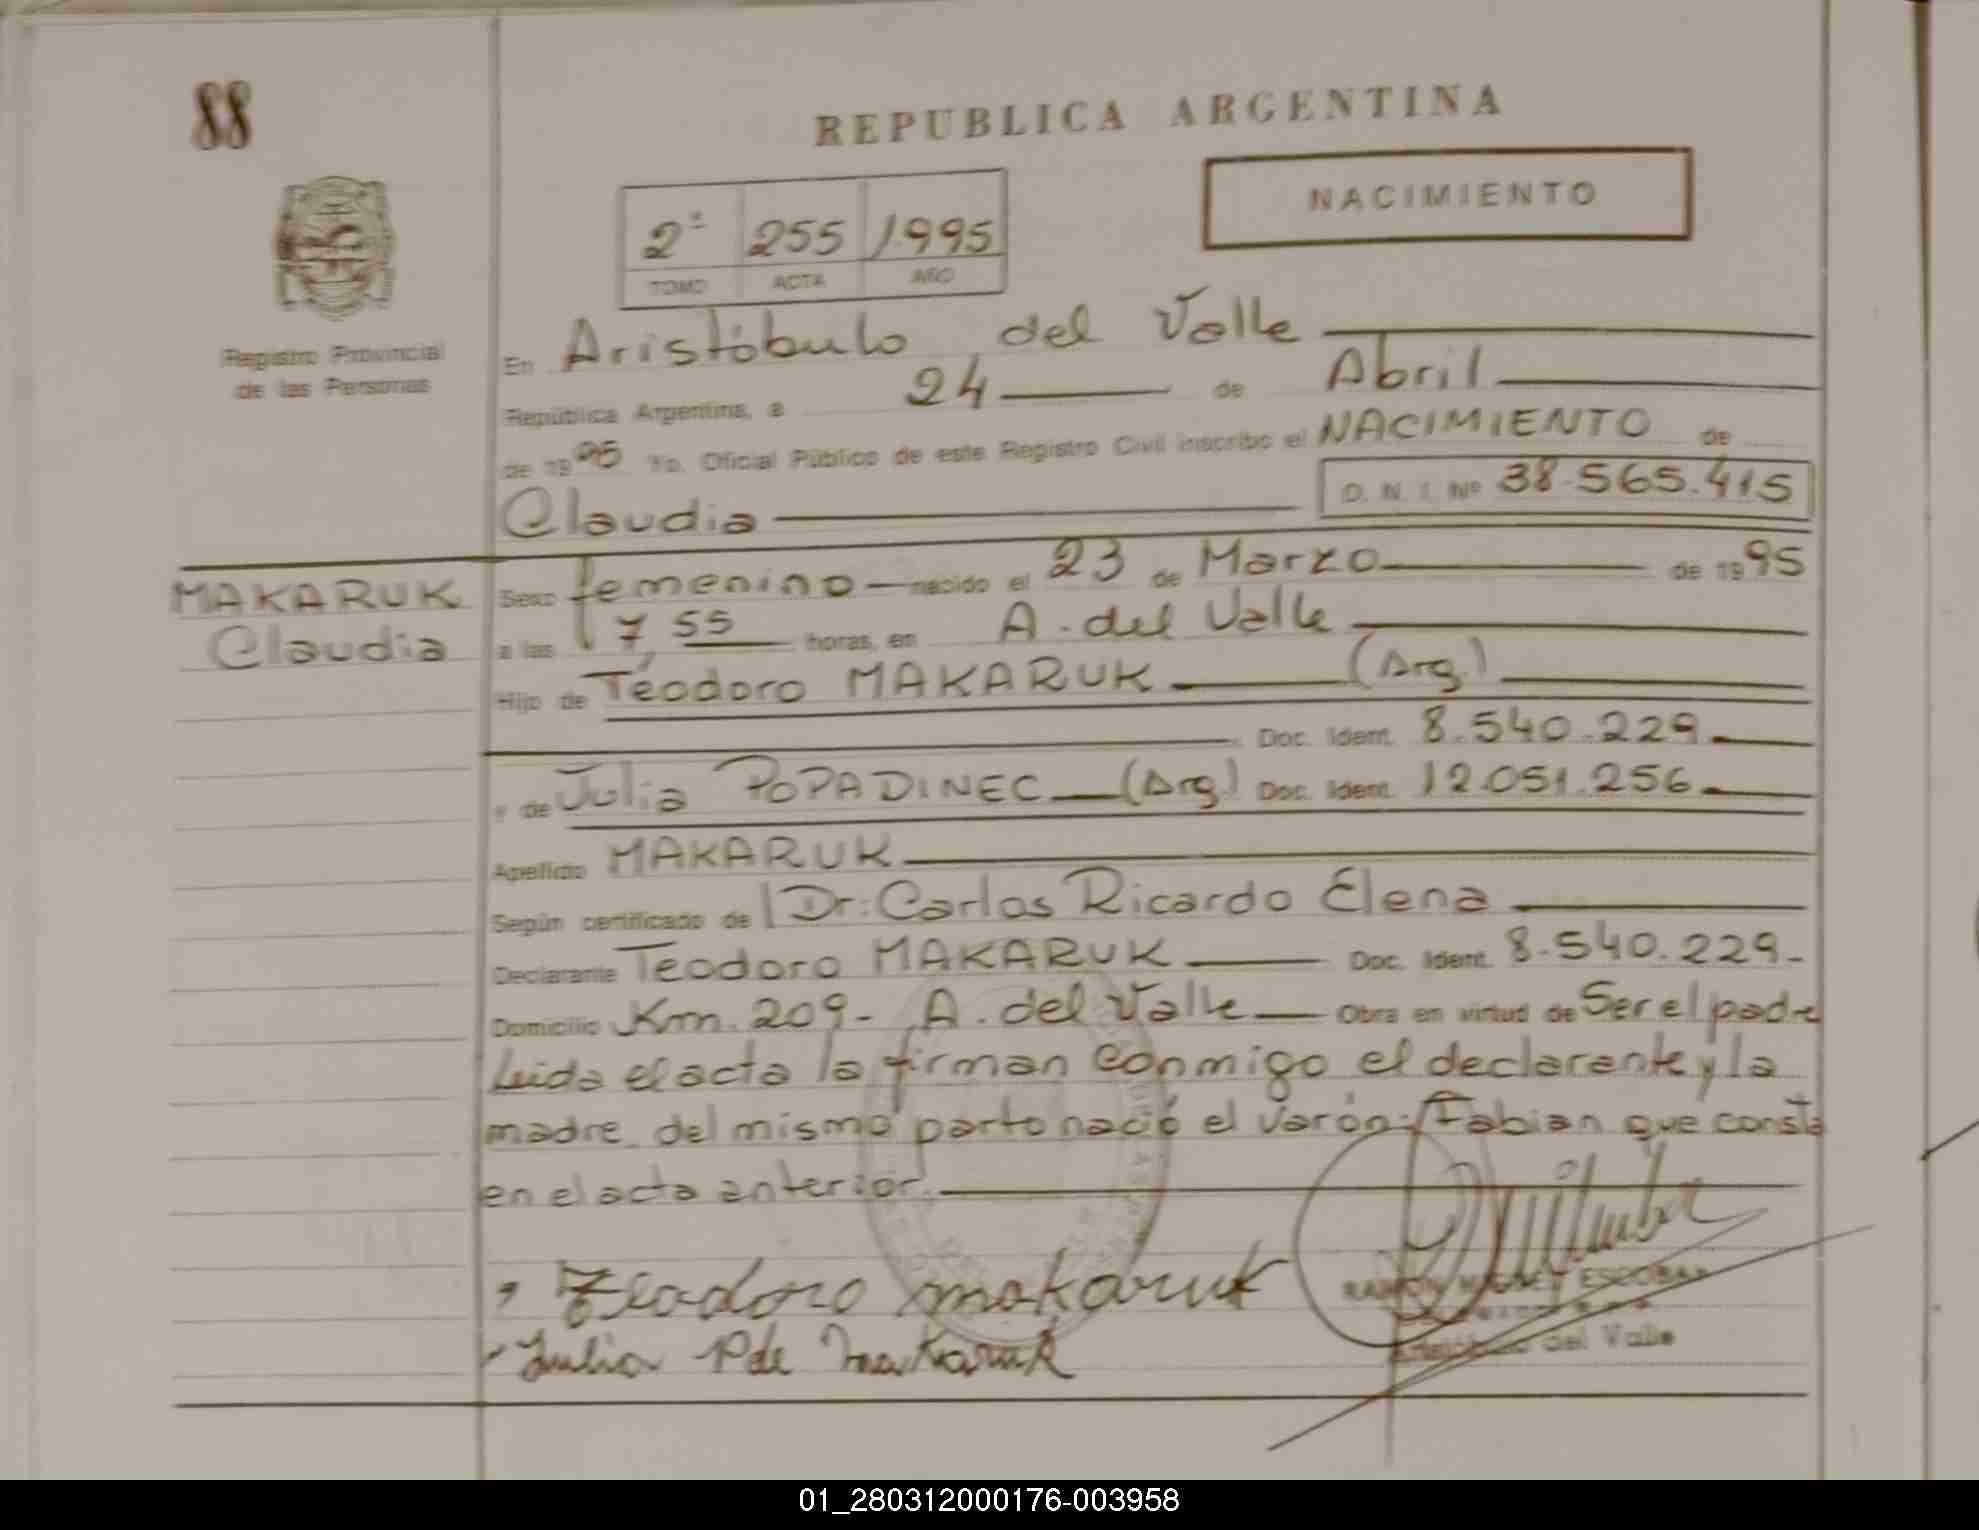 88
REPUBLICA ARGENTINA
NACIMIENTO
2ª 255 1995
TOMO ACTA AÑO
Registro Provincial
de las Personas
En Aristóbulo del Valle
República Argentina, a 24 de Abril
de 1995 Yo, Oficial Público de este Registro Civil inscribo el NACIMIENTO de
Claudia D. N. I. Nº 38.565.415
MAKARUK
Claudia
Sexo femenino nacido el 23 de Marzo de 1995
a las 7,55 horas, en A. del Valle
Hijo de Teodoro MAKARUK (Arg.)
Doc. Ident. 8.540.229
y de Julia POPADINEC (Arg) Doc. Ident. 12.051.256
Apellido MAKARUK
Según certificado de Dr: Carlos Ricardo Elena
Declarante Teodoro MAKARUK Doc. Ident. 8.540.229-
Domicilio Km. 209- A. del Valle Obra en virtud de Ser el padre
Leida el acta la firman conmigo el declarante y la
madre. del mismo parto nació el varón: Fabian que consta
en el acta anterior.
Teodoro makaruk
Julia P de Makaruk
RAMON MIGUEL ESCOBAR
Aristóbulo del Valle
01_280312000176-003958